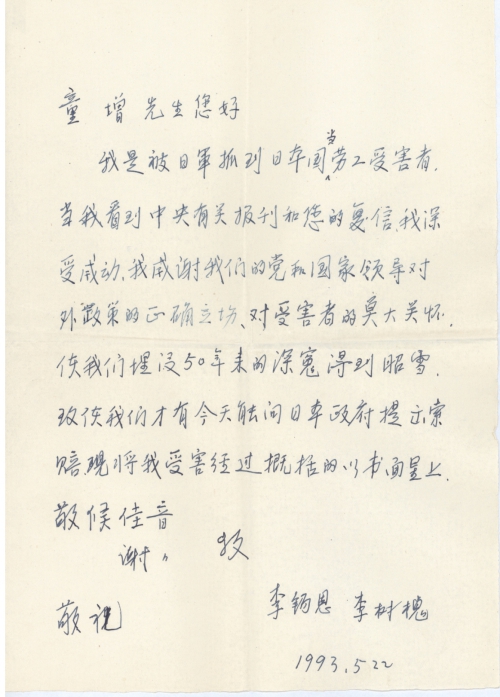 童 增 先生您好
我是被日军抓到日本国当劳工受害者.
当我看到中央有关报刊和您的复信,我深
受感动,我感谢我们的党和国家领导对
外政策的正确立场、对受害者的莫大关怀.
使我们埋没50年来的深冤得到昭雪.
致使我们才有今天能向日本政府提出索
赔,现将我受害经过概括的以书面呈上.
敬候佳音
谢〃
敬祝
李 恩 李树槐
1993.5 22